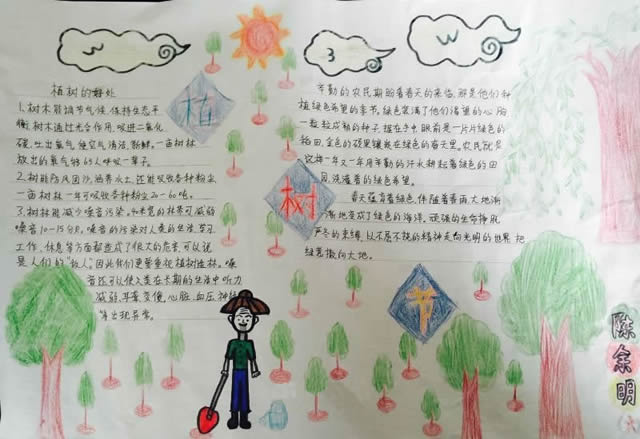 植
树
节
植树的好处
1.树木能调节气候,保持生态平
衡,树木通过光合作用,吸进二氧化
碳,吐出氧气,使空气清洁、新鲜。一亩树林
放出的氧气够65人呼吸一辈子。
2.树能防风固沙,涵养水土,还能吸收各种粉尘
一亩树林一年可吸收各种粉尘20-60吨。
3.树林能减少噪音污染。40米宽的林带可减弱
噪音10-15分贝。噪音的污染对人类的生活、学习
工作、休息等方面都造成了很大的危害,可以说
是人们的“敌人”。因此我们更要重视植树造林。噪
音还可以使人类在长期的生活中听力
减弱,耳聋变傻,心脏、血压、神经
等出现异常。
辛勤的农民期盼着春天的来临,那是他们种
植绿色希望的季节。绿色装满了他们渴望的心胸
一粒粒成熟的种子握在手中,眼前是一片片绿色的
稻田,金色的硕果镶嵌在绿色的春天里。农民就是
这样一年又一年用辛勤的汗水耕耘着绿色的田
园,浇灌着的绿色希望。
春天蕴育着绿色,伴随着春雨,大地渐
渐地变成了绿色的海洋。顽强的生命挣脱
严冬的束缚,以不屈不挠的精神走向光明的世界,把
绿意撒向大地。
陈余明